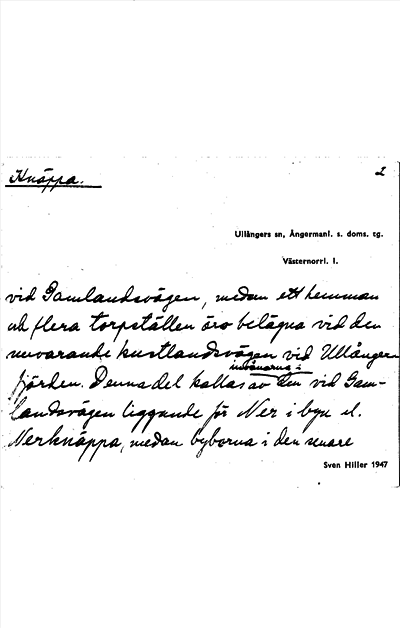 Knäppa. 2
Ullångers sn, Ångermanl. s. doms. tg.
Västernorrl. l.
vid Gamlandsvägen, medan ett hemman
och flera torpställen äro belägna vid den
nuvarande kustlandsvägen vid Ullånger-
invånarna i
fjärden. Denna del kallas av den vid Gam-
landsvägen liggande för Ner i byn el.
Nerknäppa, medan byborna i den senare
Sven Hiller 1947